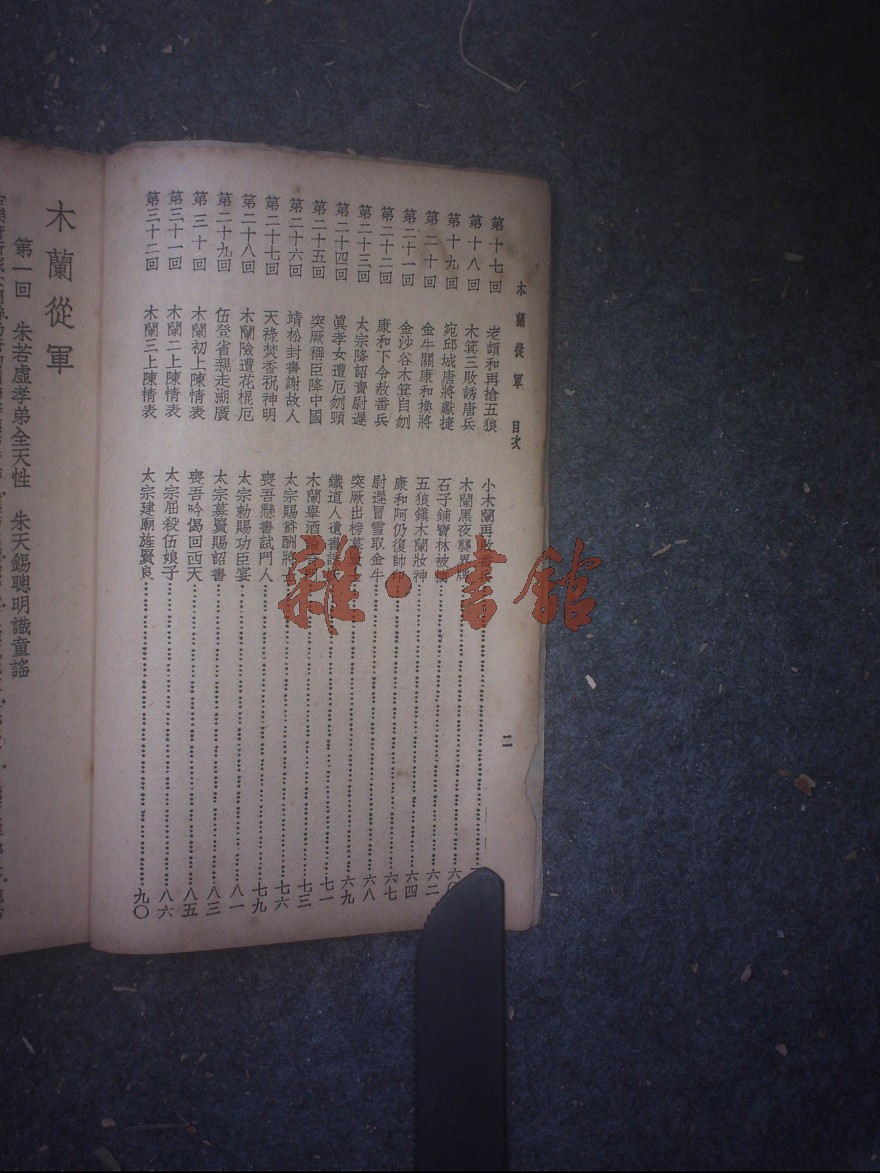 木蘭從軍 目次 二
第十七回 老頡和再搶五狼 小木蘭再敗番
第十八回 木箕三敗誘唐兵 木蘭黑夜襲
第十九回 宛邱城唐將獻捷 石子鋪寶林被 六〇
第二十回 金牛關康和換將 五狼鎮木蘭妝神 六二
第二十一回 金沙谷木箕自刎 康和阿仍復帥印 六四
第二十二回 康和下令赦番兵 尉遲冒雪取金牛 六七
第二十三回 太宗降詔責尉遲 突厥出榜募 六八
第二十四回 眞孝女遭厄刎頸 鐵道人遺書 六九
第二十五回 突厥稱臣降中國 木蘭舉酒 七一
第二十六回 靖松封書謝故人 太宗賜酬將 七三
第二十七回 天祿焚香祝神明 喪吾懸書試門人 七六
第二十八回 木蘭險遭花棍厄 太宗勅賜功臣宴 七九
第二十九回 伍登省親走湖廣 太宗募賢賜詔書 八一
第三十回 木蘭初上陳情表 喪吾吟偈回西天 八三
第三十一回 木蘭二上陳情表 太宗屈殺伍娘子 八五
第三十二回 木蘭三上陳情表 太宗建廟旌賢良 八六
九〇
木蘭從軍
第一回 朱若虛孝弟全天性 朱天錫聰明識童謠
雜·書館